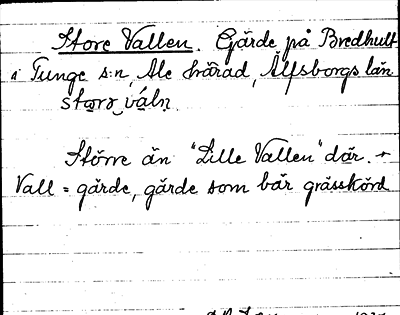 Store Vallen. Gärde på Bredhult
i Tunge s:n, Ale härad, Älfsborgs län
Större än "Lille Vallen" där. +
Vall = gärde, gärde som bär grässkörd